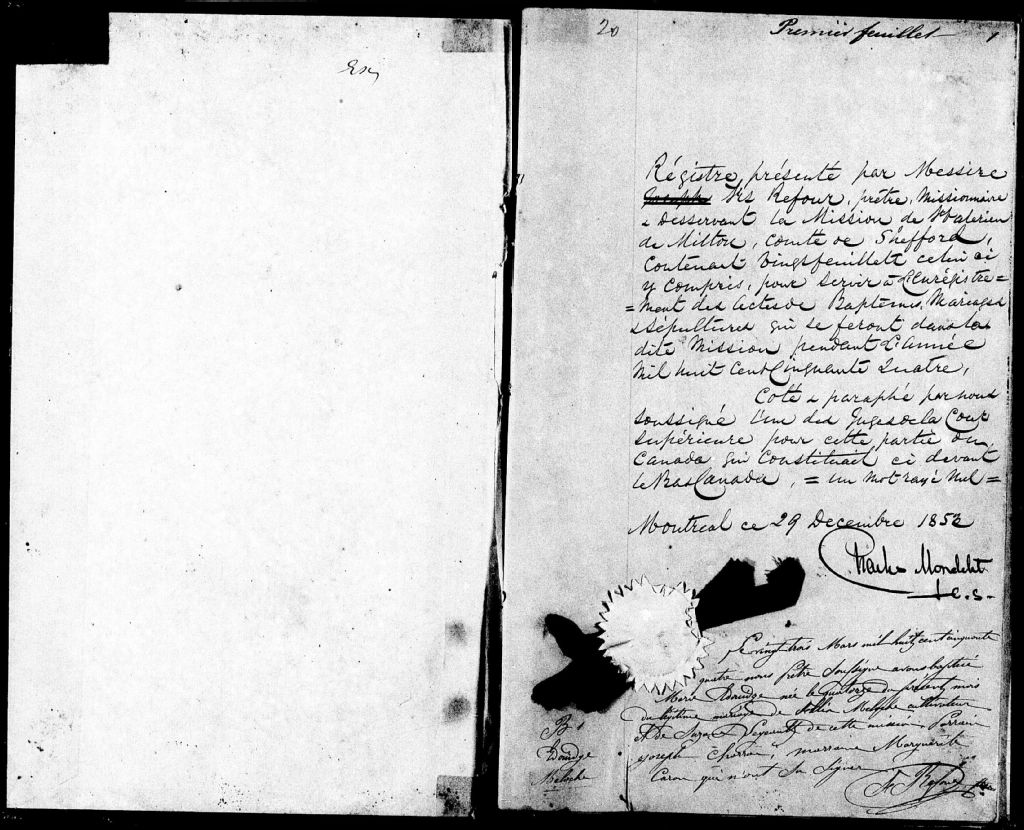 20
Premier feuillet 1
Régistre, présenté par Messire
Joseph Frs Refour, prêtre, Missionnaire
& Desservant la Mission de St Valerien
de Milton, Comté de Shefford,
Contenant Vingt feuillets celui ci
y Compris, pour servir à L'Enrégistre=
=ment des Actes de Baptêmes, Mariages
& Sépultures qui se feront dans la
dite Mission pendant L'Année
Mil huit Cent Cinquante Quatre,
Coté & paraphé par nous
soussigné L'un des Juges de la Cour
Supérieure pour cette partie du
Canada qui Constituait ci devant
le Bas Canada, = un mot rayé Nul =
Montreal ce 29 Decembre 1853
Charles Mondelet
J.C.S.
Le vingt trois Mars mil huit cent cinquante
quatre nous Prêtre Soussigné avons baptisé
Marie née le quatorze du présent mois
du légitime mariage de cultivateur
et de de cette mission Parrain
Joseph marraine Marguerite
Caron qui n'ont Su Signer
B 1